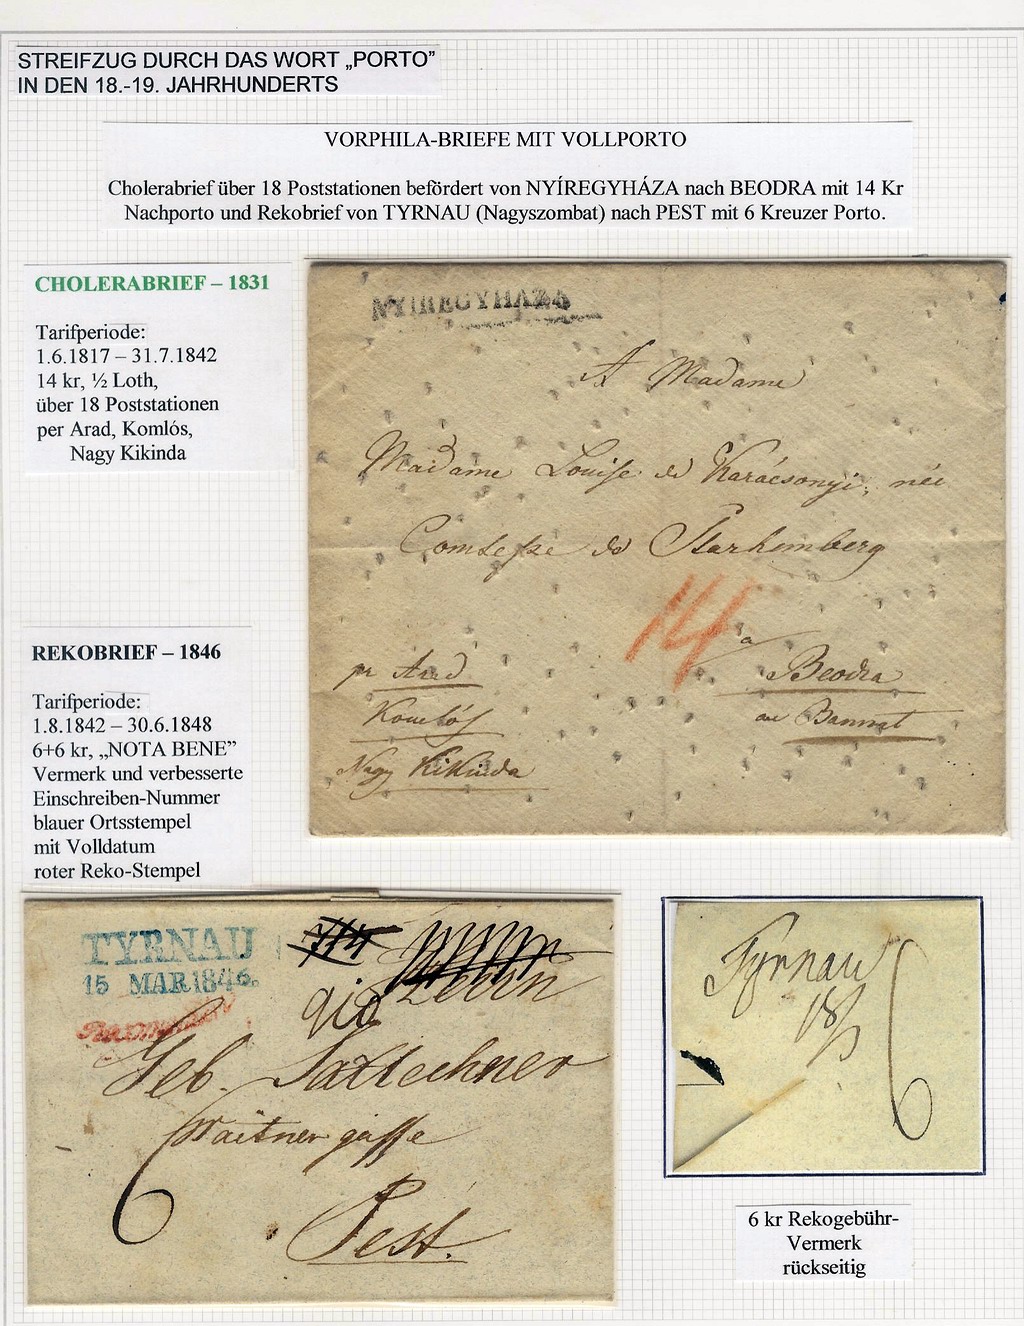 STREIFZUG DURCH DAS WORT „PORTO”
IN DEN 18.-19. JAHRHUNDERTS
VORPHILA-BRIEFE MIT VOLLPORTO
Cholerabrief über 18 Poststationen befördert von NYÍREGYHÁZA nach BEODRA mit 14 Kr
Nachporto und Rekobrief von TYRNAU (Nagyszombat) nach PEST mit 6 Kreuzer Porto.
CHOLERABRIEF – 1831
Tarifperiode:
1.6.1817 – 31.7.1842
14 kr, ½ Loth,
über 18 Poststationen
per Arad, Komlós,
Nagy Kikinda
NYIREGYHÁZA
A Madame
Madame Louise de Karácsonyi, née
Comtesse de Starhemberg
14
a
Beodra
au Bannat
pr Arad
Komlós
Nagy Kikinda
REKOBRIEF – 1846
Tarifperiode:
1.8.1842 – 30.6.1848
6+6 kr, „NOTA BENE”
Vermerk und verbesserte
Einschreiben-Nummer
blauer Ortsstempel
mit Volldatum
roter Reko-Stempel
TYRNAU
15 MAR 1846.
Geb.
Waitner gasse
6
Pest.
Tyrnau
18/3
6
6 kr Rekogebühr-
Vermerk
rückseitig